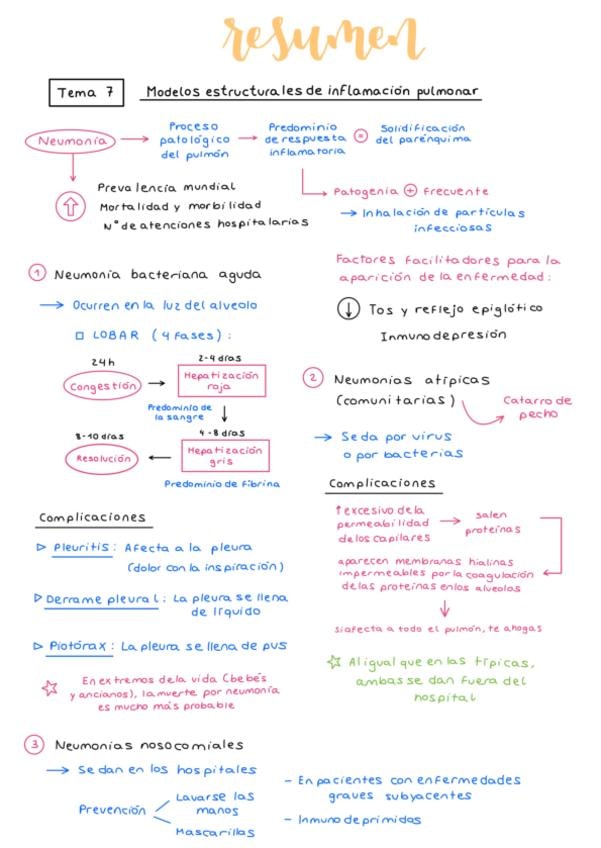 resumen
Tema 7
Modelos estructurales de inflamación pulmonar
Neumonía → Proceso patológico del pulmón → Predominio de respuesta inflamatoria ⊗ Solidificación del parénquima
↑ Prevalencia mundial
Mortalidad y morbilidad
Nº de atenciones hospitalarias
Patogenia ⊕ frecuente
→ Inhalación de partículas
infecciosas
Factores facilitadores para la
aparición de la enfermedad:
↓ Tos y reflejo epiglótico
Inmunodepresión
1 Neumonía bacteriana aguda
→ Ocurren en la luz del alveolo
□ LOBAR (4 fases):
24h
Congestión
2-4 días
Hepatización
roja
Predominio de
la sangre
4-8 días
Hepatización
gris
Predominio de fibrina
8-10 días
Resolución
Complicaciones
▷ Pleuritis: Afecta a la pleura
(dolor con la inspiración)
▷ Derrame pleural: La pleura se llena
de líquido
▷ Piotórax: La pleura se llena de pus
☆ En extremos de la vida (bebés
y ancianos), la muerte por neumonía
es mucho más probable
2 Neumonías atípicas
(comunitarias)
Catarro de
pecho
→ Se da por virus
o por bacterias
Complicaciones
↑ excesivo de la
permeabilidad
de los capilares
salen
proteínas
aparecen membranas hialinas
impermeables por la coagulación
de las proteínas en los alveolos
si afecta a todo el pulmón, te ahogas
☆ Al igual que en las típicas,
ambas se dan fuera del
hospital
3 Neumonías nosocomiales
→ Se dan en los hospitales
Prevención
Lavarse las
manos
Mascarillas
- En pacientes con enfermedades
graves subyacentes
- Inmunodeprimidos